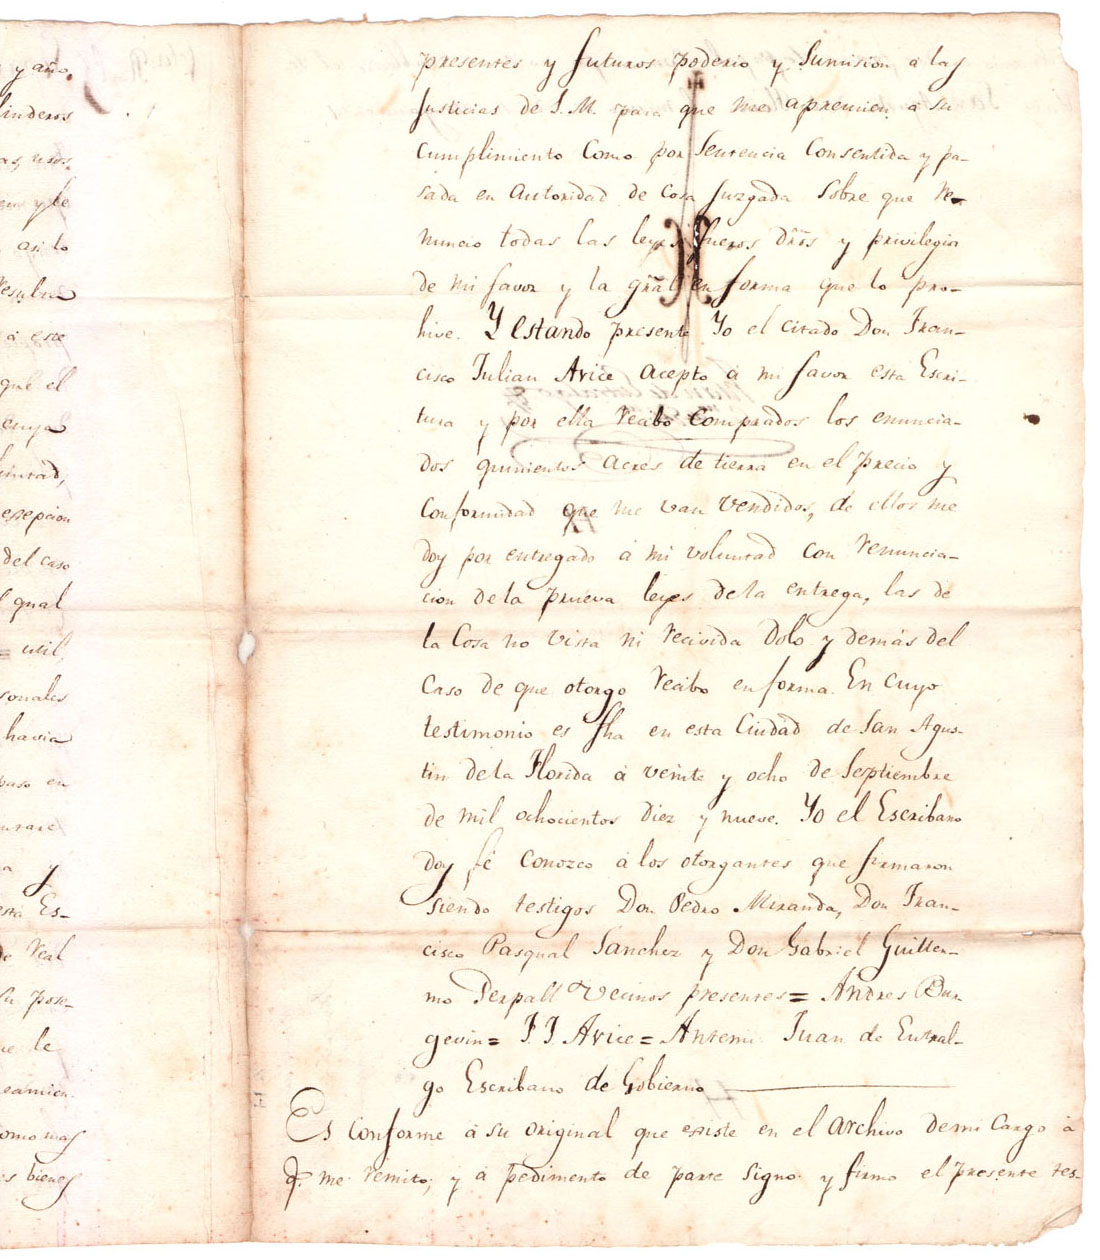 y año,
linderos
as, usos,
asi lo
Resulta
a este
que el
del caso
l qual
= util,
sonales
havia
paso en
a y
esta Es-
de Real
su pose-
como mas
s bienes
presentes y futuros poderio y Sumision a las
Justicias de S. M. para que me apremien a su
Cumplimiento Como por Sentencia Consentida y pa-
sada en Autoridad de Cosa Juzgada Sobre que Re-
nuncio todas las leyes fueros dros y privilegios
de mi favor y la gral en forma que lo pro-
hive. Y estando presente Yo el citado Don Fran-
cisco Julian Avice Acepto a mi favor esta Escri-
tura y por ella recibo Comprados los enuncia-
dos quinientos Acres de tierra en el precio y
Conformidad que me van Vendidos, de ellos me
doy por entregado a mi voluntad con renuncia-
cion de la prueva leyes de la entrega, las de
la Cosa no Vista ni recivida Dolo y demás del
Caso de que otorgo recibo en forma. En cuyo
testimonio es fha en esta Ciudad de San Agus-
tin de la Florida a veinte y ocho de Septiembre
de mil ochocientos Diez y nueve. Yo el Escribano
doy fé Conozco á los otorgantes que firmaron
Siendo testigos Don Pedro Miranda, Don Fran-
cisco Pasqual Sanchez y Don Gabriel Guiller-
mo Perpall Vecinos presentes = Andres Bur-
gevin = F. J. Avice = Antemi Juan de Entral-
go Escribano de Gobierno
Es Conforme á su original que existe en el Archivo de mi Cargo á
q. me remito, y á pedimento de parte signo y firmo el presente tes-